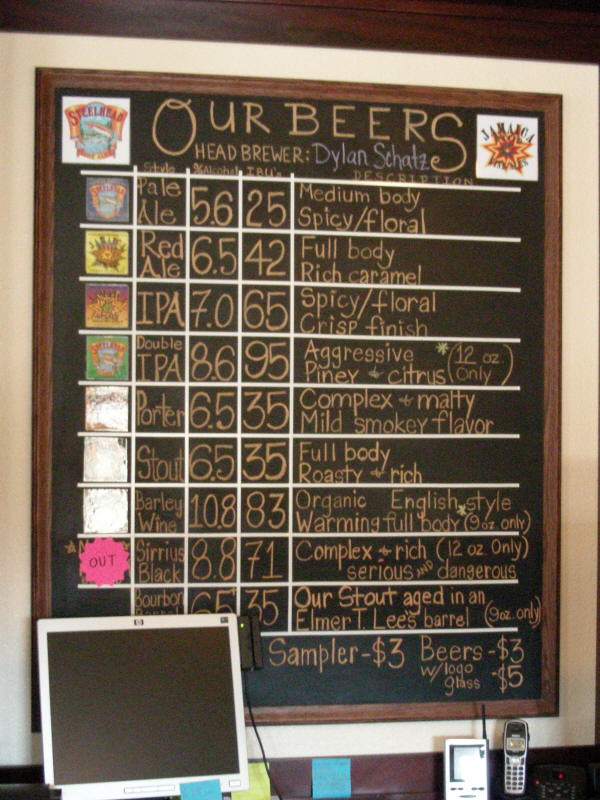 OUR BEERS
STEELHEAD
JAMAICA
HEAD BREWER: Dylan Schatze
Style %Alcohol IBU's DESCRIPTION
Pale Ale 5.6 25 Medium body
Spicy/floral
Red Ale 6.5 42 Full body
Rich caramel
IPA 7.0 65 Spicy/floral
Crisp finish
Double IPA 8.6 95 Aggressive *(12 oz. only)
Piney + citrus
Porter 6.5 35 Complex + malty
Mild smokey flavor
Stout 6.5 35 Full body
Roasty + rich
Barley Wine 10.8 83 Organic English style
Warming full body *(9oz only)
OUT Sirrius Black 8.8 71 Complex + rich (12 oz. Only)
serious AND dangerous
Bourbon Barrel 6.5+ 35 Our Stout aged in an
Elmer T. Lee's barrel (9oz. only)
Sampler-$3 Beers-$3
w/logo glass -$5
hp